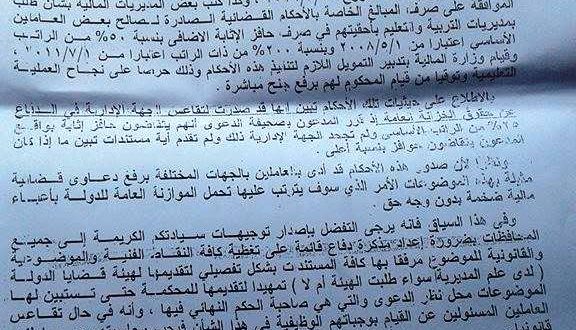 الموافقة على صرف المبالغ الخاصة بالأحكام القضائية الصادرة لصالح بعض العاملين
بمديريات التربية والتعليم بأحقيتهم في صرف حافز الإثابة الإضافى بنسبة ٥٠% من الراتب
الأساسي اعتبارا من ٢٠٠٨/٥/١ وبنسبة ٢٠٠% من ذات الراتب اعتبارا من ٢٠١١/٧/١
وقيام وزارة المالية بتدبير التمويل اللازم لتنفيذ هذه الأحكام وذلك حرصا على نجاح العملية
التعليمية وتوقيا من قيام المحكوم لهم برفع جنح مباشرة .
وبالاطلاع على حيثيات تلك الأحكام تبين إنها قد صدرت لتقاعس الجهة الإدارية في الدفاع
عن حقوق الخزانة العامة إذ قرر المدعون بصحيفة الدعوى أنهم يتقاضون حافز إثابة بواقع
٢٥% من الراتب الأساسى ولم تجحد الجهة الإدارية ذلك ولم تقدم أية مستندات تبين ما إذا كان
المدعون يتقاضون حوافز بنسبة أعلى .
ونظرا لأن صدور هذه الأحكام قد أدى بالعاملين بالجهات المختلفة برفع دعاوى قضائية
مثيلة بهذه الموضوعات الأمر الذي سوف يترتب عليها تحمل الموازنة العامة للدولة بأعباء
مالية ضخمة بدون وجه حق .
وفي هذا السياق فانه يرجى التفضل بإصدار توجيهات سيادتكم الكريمة إلى جميع
المحافظات بضرورة إعداد مذكرة دفاع قائمة على تغطية كافة النقاط الفنية والموضوعية
والقانونية للموضوع مرفقا بها كافة المستندات بشكل تفصيلي لتقديمها لهيئة قضايا الدولة
( لدى علم المديرية سواء طلبت الهيئة أم لا ) تمهيدا لتقديمها للمحكمة حتى تستبين لها
الموضوعات محل نظر الدعوى والتي هي صاحبة الحكم النهائي فيها ، وأنه في حال تقاعس
العاملين المسئولين عن القيام بواجباتهم الوظيفية في هذا الشأن